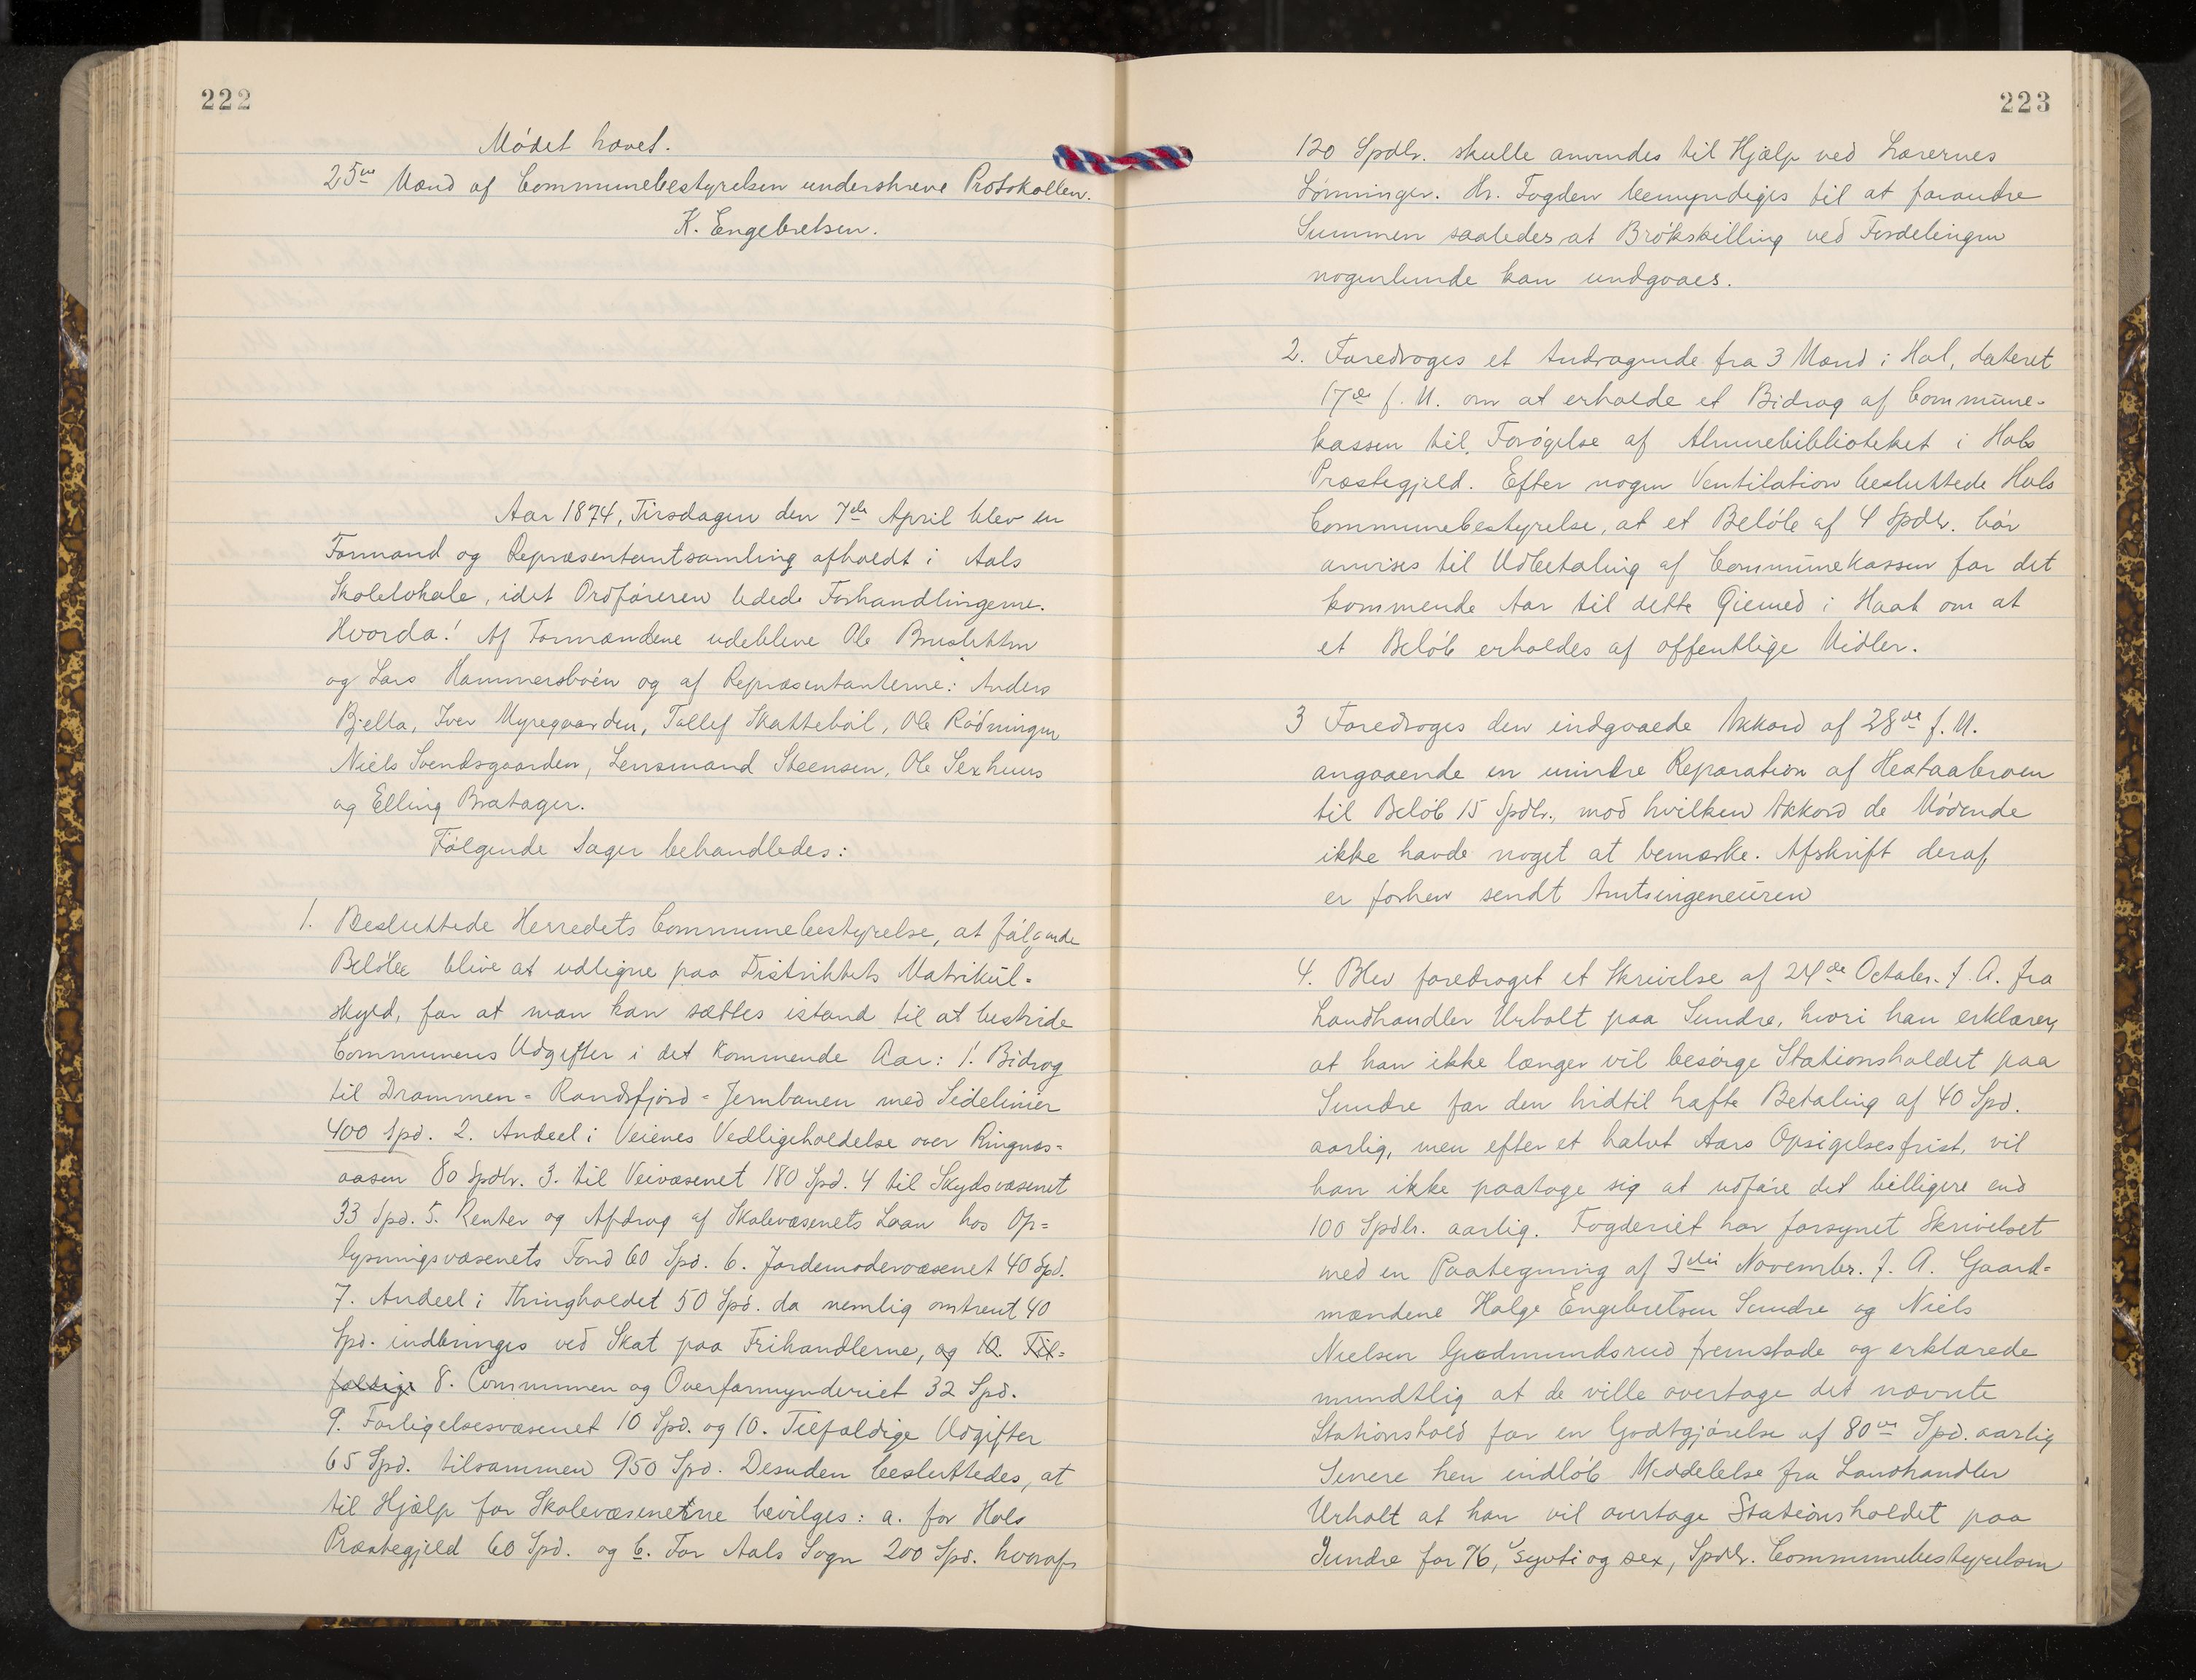 222
Mødet hævet.
25ve Mænd af Communebestyrelsen underskreve Protokollen.
K. Engebretsen.
Aar 1874, Tirsdagen den 7de April blev en
Formand og Repræsentantsamling afholdt i Aals
Skolelokale, idet Ordføreren ledede Forhandlingerne.
Hvorda! Af Formændene udebleve Ole Brusletten
og Lars Hammersbøen og af Repræsentanterne: Anders
Bjella, Iver Myregaarden, Tollef Skattebøl, Ole Rødningen
Niels Svendsgaarden, Lensmand Steensen, Ole Sexhuus
og Elling Bratager.
Følgende Sager behandledes:
1. Besluttede Herredets Communebestyrelse, at følgende
Beløbe blive at udligne paa Distriktets Matrikül-
skyld, for at man kan sættes istand til at bestride
Communens Udgifter i det kommende Aar: 1. Bidrag
til Drammen-Randsfjord-Jernbanen med Sidelinier
400 Spd. 2. Andeel i Veienes Vedligeholdelse over Ringnæs=
aasen 80 Spdlr. 3. til Veivæsenet 180 Spd. 4 til Skydsvæsenet
33 Spd. 5. Renter og Afdrag af Skolevæsenets Laan hos Op=
lysningsvæsenets Fond 60 Spd. 6. Jordemodervæsenet 40 Spd.
7. Andeel i Thingholdet 50 Spd. da nemlig omtrent 40
Spd. indbringes ved Skat paa Frihandlerne, og 10. Til=
fældige 8. Communen og Overformynderiet 32 Spd.
9. Forligelsesvæsenet 10 Spd. og 10. Tilfældige Udgifter
65 Spd. tilsammen 950 Spd. Desuden besluttedes, at
til Hjælp for Skolevæsenetrne bevilges: a. for Hols
Præstegjeld 60 Spd. og b. For Aals Sogn 200 Spd. hvoraf
223
120 Spdlr. skulle anvendes til Hjælp ved Lærernes
Lønninger. Hr. Fogden bemyndiges til at forandre
Summen saaledes at Brøkskilling ved Fordelingen
nogenlunde kan undgaaes.
2. Foredroges et Andragende fra 3 Mænd i Hol, dateret
17de f. M. om at erholde et Bidrag af Commüne-
kassen til Forøgelse af Almuebiblioteket i Hols
Præstegjeld. Efter nogen Ventilation besluttede Hols
Communebestyrelse, at et Beløb af 4 Spdlr. bør
anvises til Udbetaling af Commünekassen for det
kommende Aar til dette Øiemed i Haab om at
et Beløb erholdes af offentlige Midler.
3 Foredroges den indgaaede Akkord af 28de f. M.
angaaende en mindre Reparation af Heataabroen
til Beløb 15 Spdlr., mod hvilken Akkord de Mødende
ikke havde noget at bemærke. Afskrift deraf
er forhen sendt Amtsingeneüren
4. Blev foredraget et Skrivelse af 24de Octobr. f. A. fra
Landhandler Urholt paa Sundre, hvori han erklærer,
at han ikke længer vil besørge Stationsholdet paa
Sundre for den hidtil hafte Betaling af 40 Spd.
aarlig, men efter et halvt Aars Opsigelsesfrist, vil
han ikke paatage sig at udføre det billigere end
100 Spdlr. aarlig. Fogderiet har forsynet Skrivelset
med en Paategning af 3die Novembr. f. A. Gaard=
mændene Holge Engebretsen Sundre og Niels
Nielsen Gudmundsrud fremstode og erklærede
mundtlig at de ville overtage det nævnte
Stationshold for en Godtgjørelse af 80ve Spd. aarlig
Senere hen indløb Meddelelse fra Landhandler
Urholt at han vil overtage Stationsholdet paa
Sundre for 76, syvti og sex, Spdlr. Communebestyrelsen